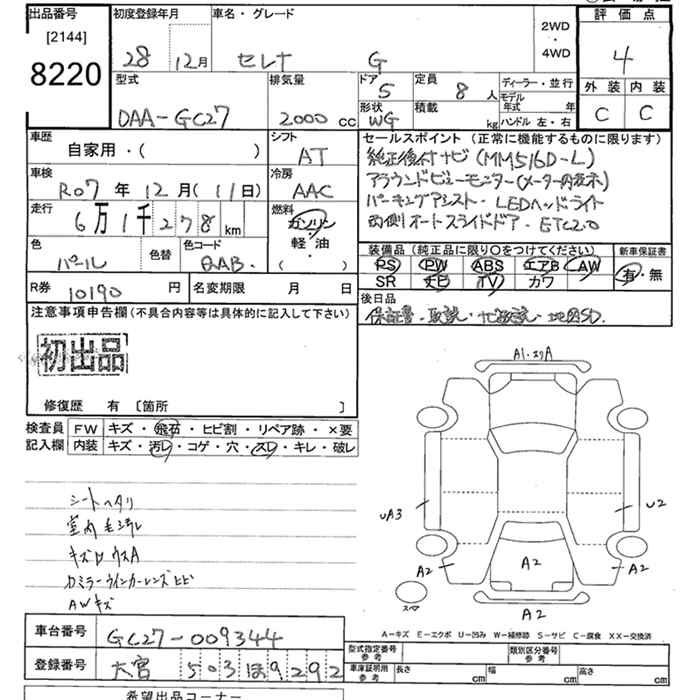 出品番号
[2144]
8220
初度登録年月
28 12月
車名・グレード
セレナ G
2WD
・
4WD
評価点
4
外装 内装
C C
型式
DAA-GC27
排気量
2000 cc
ドア 5
形状 WG
定員 8 人
積載 kg
ディーラー・並行
モデル年式 年
ハンドル 左・右
車歴
自家用・( )
シフト
AT
車検
R07年12月(11日)
冷房
AAC
走行
6万1千278km
燃料
ガソリン
軽・油
( )
色
パール
色替
色コード
QAB.
R券 10190 円
名変期限 月 日
セールスポイント(正常に機能するものに限ります)
純正後付ナビ(MM516D-L)
アラウンドビューモニター(メーター内表示)
パーキングアシスト・LEDヘッドライト
両側オートスライドドア・ETC2.0
装備品(純正品に限り○をつけてください)
PS PW ABS エアB AW
SR ナビ TV カワ
新車保証書
有・無
後日品
保証書・取説・ナビ取説・地図SD.
注意事項申告欄(不具合内容等は具体的に記入して下さい)
初出品
修復歴 有〔箇所 〕
検査員記入欄
FW キズ・飛石・ヒビ割・リペア跡・×要
内装 キズ・汚レ・コゲ・穴・スレ・キレ・破レ
シートヘタリ
室内毛汚レ
キズロウスA
カミラーウインカーレンズヒビ
AWキズ
A1・エクA
UA3
U2
A2
A2
A2
A2
スペア
A-キズ E-エクボ U-凹み W-補修跡 S-サビ C-腐食 XX-交換済
車台番号 GC27-009344
登録番号 大宮 503 ほ9292
型式指定番号参考
類別区分番号参考
車庫証明用参考
長さ cm 幅 cm 高さ cm
希望出品コーナー